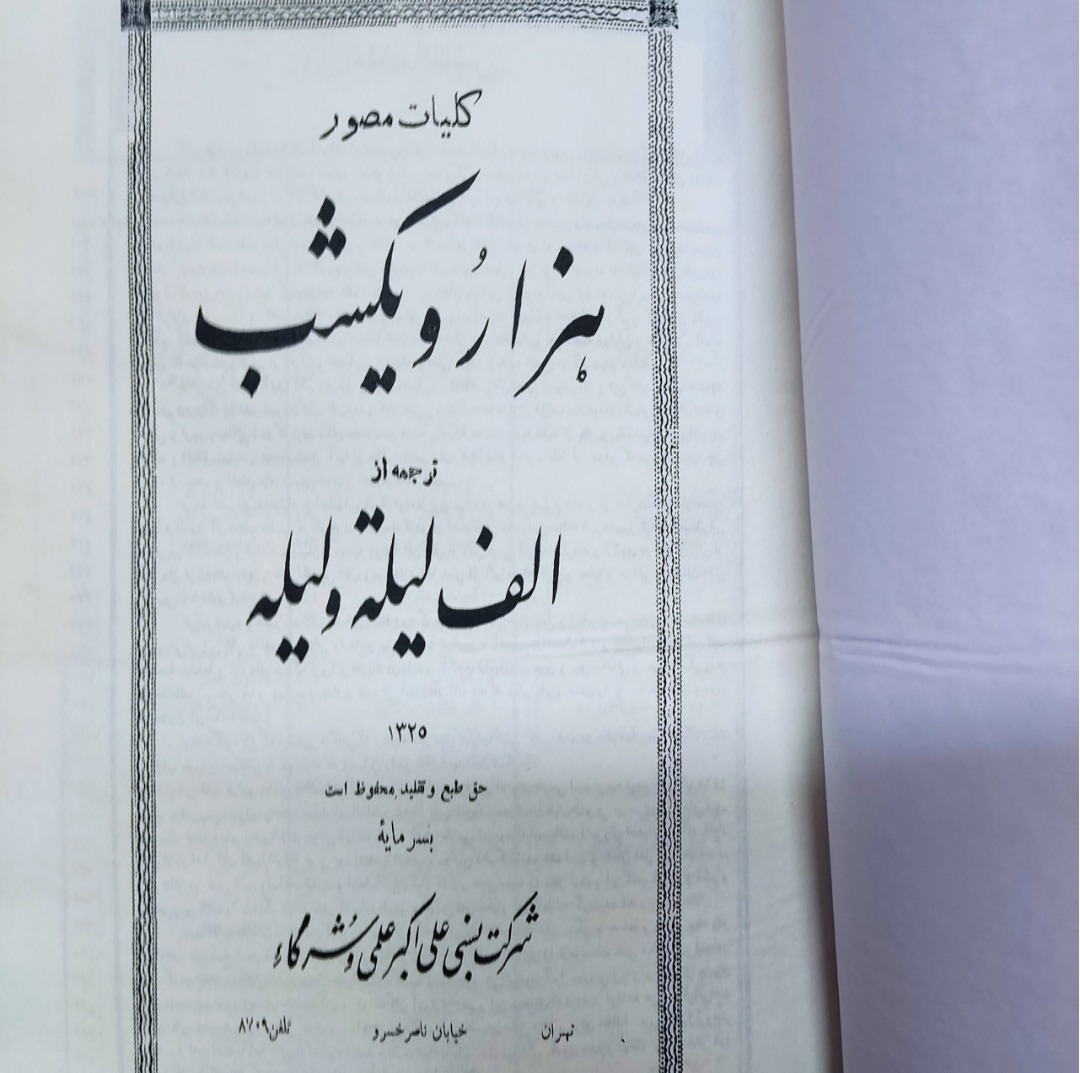 کلیات مصور
هزارُ و یکشب
ترجمه از
الف لیلة و لیله
۱۳۲۵
حق طبع و تقلید محفوظ است
بسرمایهٔ
شرکت نسبی علی اکبر علمی و شرکاء
تهران خیابان ناصرخسرو تلفن ۸۷۰۹